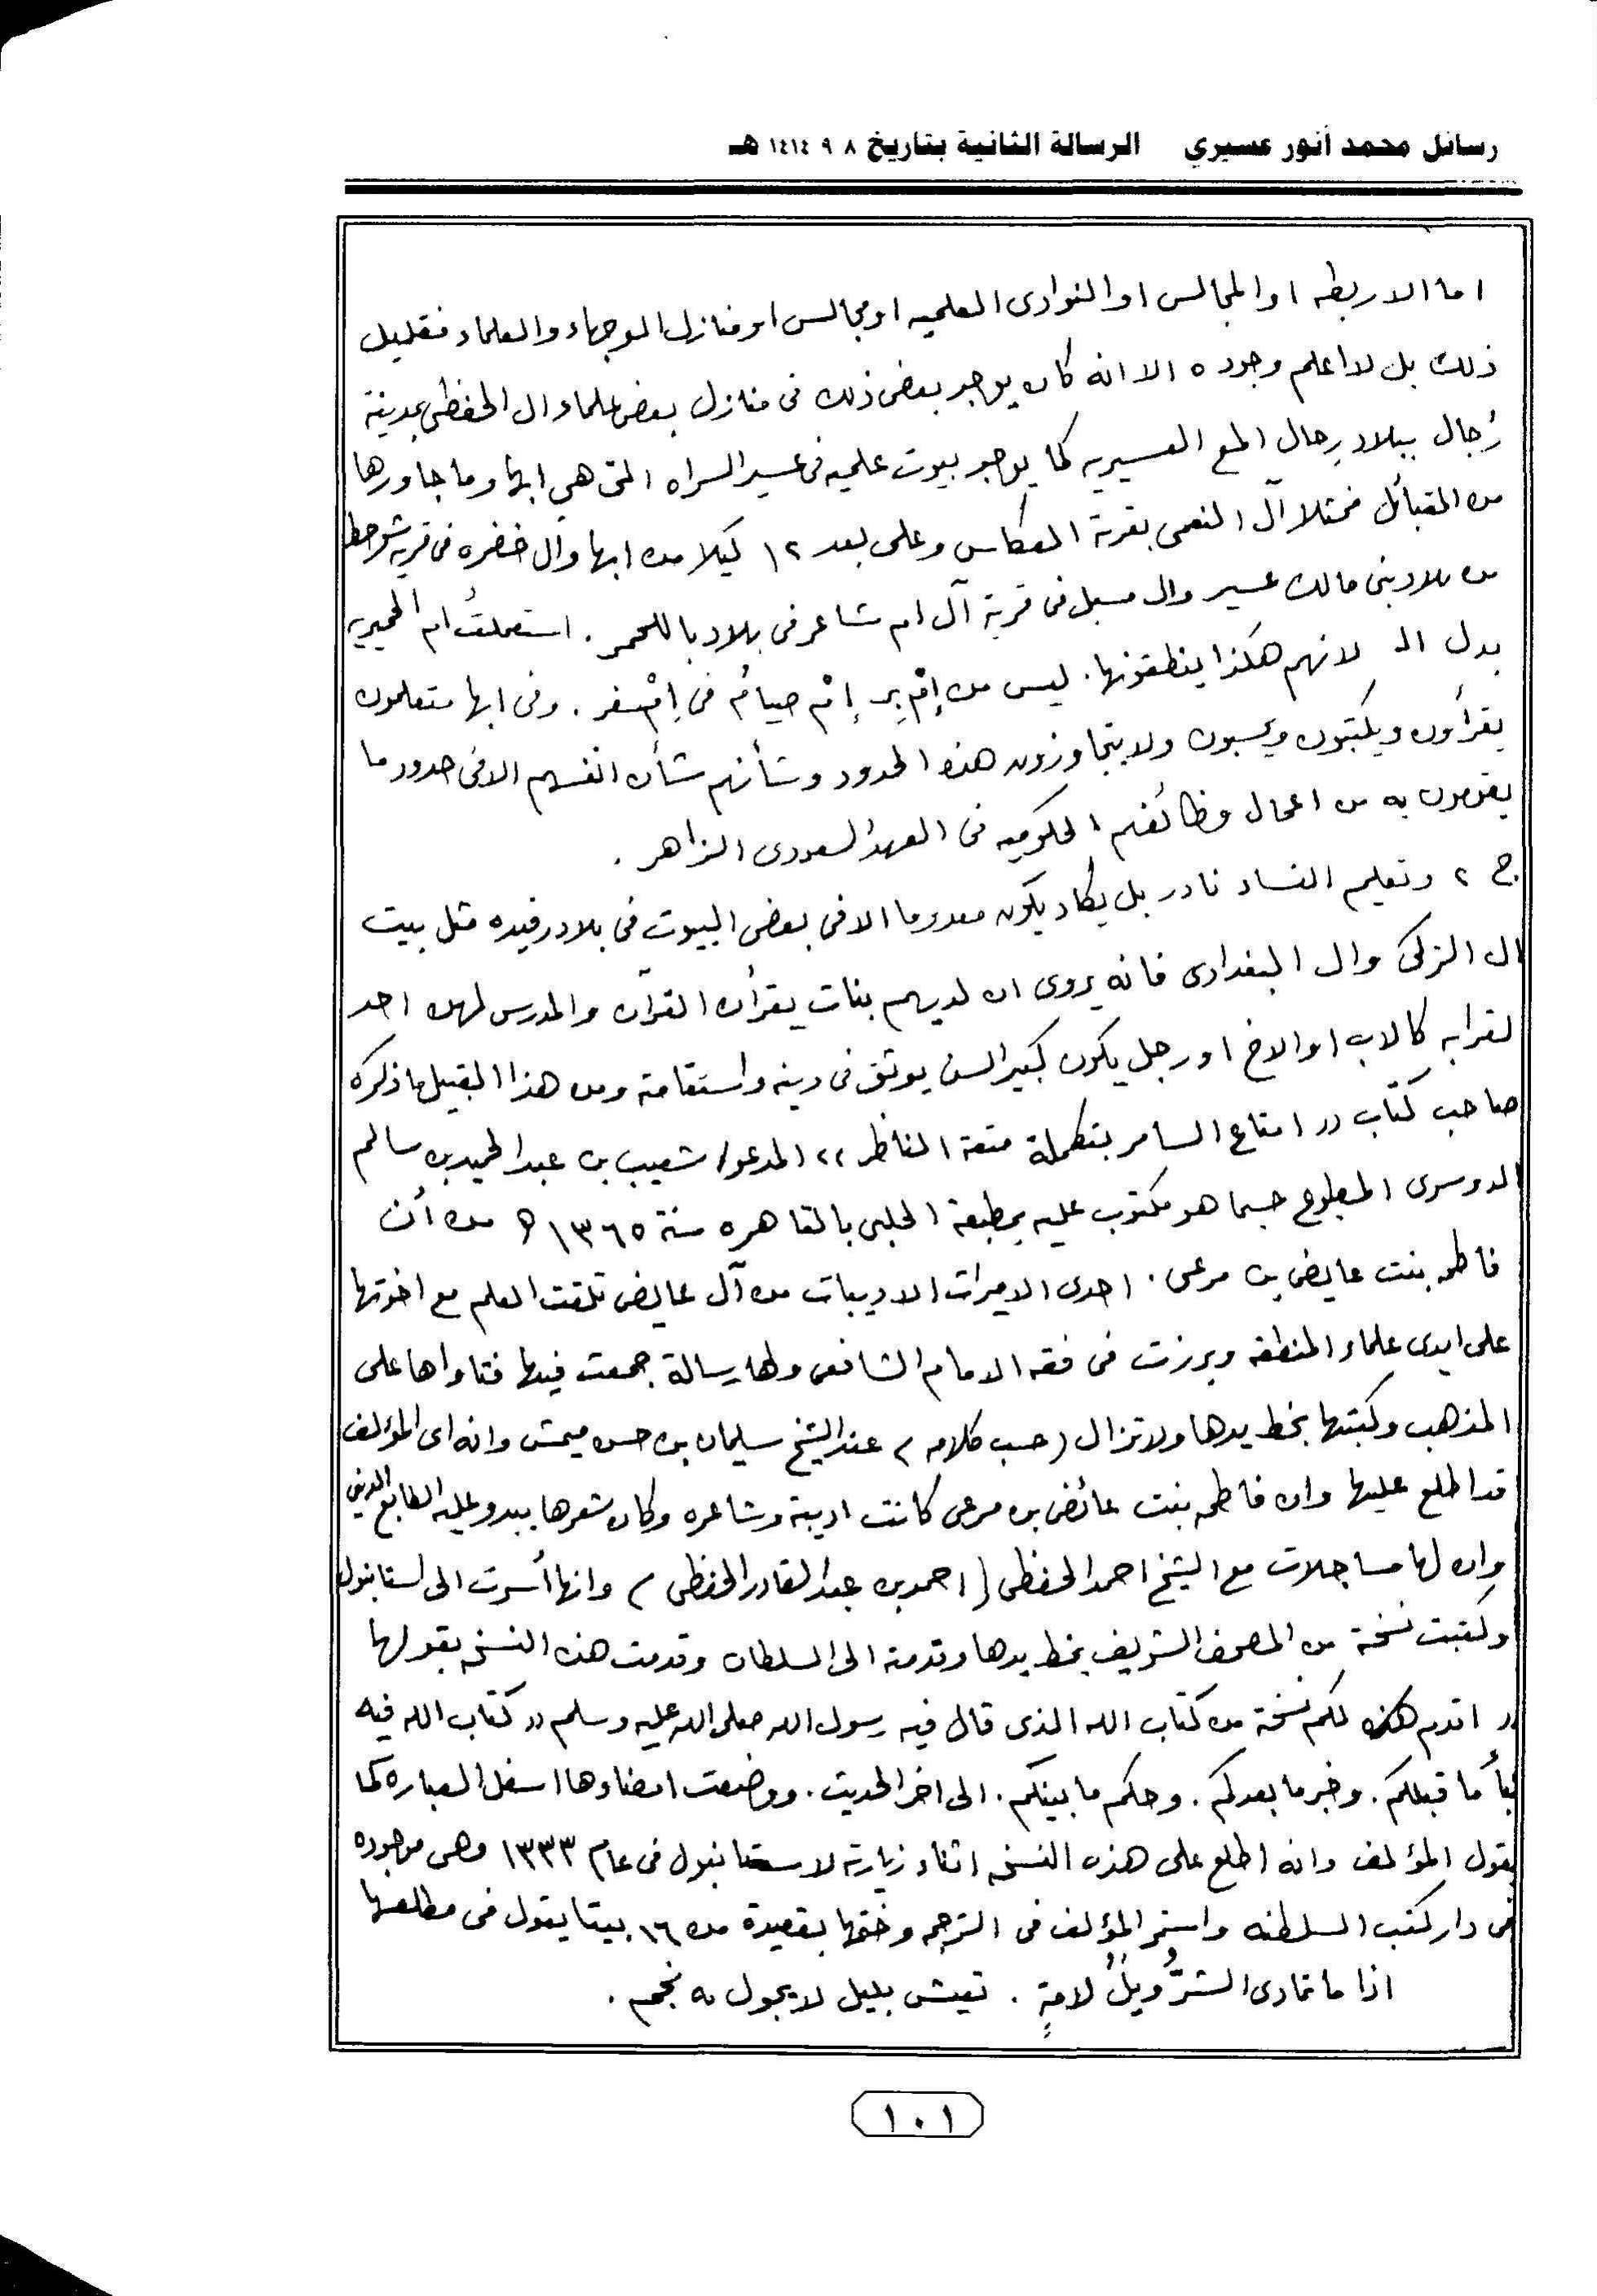 رسائل محمد أنور عسيري الرسالة الثانية بتاريخ ٨ ٩ ١٤١٤ هـ
اما الاربطه او المجالس او النوادى العلميه او مجالس او منازل الوجهاء والعلماء فقليل
ذلك بل لا اعلم وجوده الا انه كان يوجد بعض ذلك فى منازل بعض علماء ال الحفظى بمدينة
رُجال ببلاد رجال المع العسيريه كما يوجد بيوت علميه فى عسير السراه التى هى ابها وما جاورها
من القبائل فمثلا آل النعمى بقرية العكاس وعلى بعد ١٢ كيلا من ابها وآل خضره فى قرية شوحط
من بلاد بنى مالك عسير وال مسبل فى قرية آل ام شاعر فى بلاد باللحمر . استعملتُ ام الحميريه
بدل الـ لانهم هكذا ينطقونها . ليس من اِمْ بِرِ اِمْ صيامُ فى اِمْ سفر . وفى ابها متعلمون
يقرأون ويكتبون ويحسبون ولا يتجاوزون هذه الحدود وشأنهم شأن انفسهم الا فى حدود ما
يقومون به من اعمال وظائفهم الحكوميه فى العهد السعودى الزاهر .
ج ٢ وتعليم النساء نادر بل يكاد يكون معدوما الا فى بعض البيوت فى بلاد رفيده مثل بيت
ال الزكى وال البغدادى فانه يروى ان لديهم بنات يقرأن القرآن والمدرس لهن احد
لقرابه كالاب او الاخ او رجل يكون كبير السن يوثق فى دينه واستقامته ومن هذا القبيل ما ذكره
صاحب كتاب (( امتاع السامر بتكملة متعة الناظر )) المدعو/ شعيب بن عبد الحميد بن سالم
الدوسرى المطبوع حسبما هو مكتوب عليه بمطبعة الحلبى بالقاهره سنة ١٣٦٥ هـ من أن
فاطمه بنت عايض بن مرعى . احدى الاميرات الاديبات من آل عايض تلقت العلم مع اخوتها
على ايدى علماء المنطقه وبرزت فى فقه الامام الشافعى ولها رسالة جمعت فيها فتاواها على
المذهب وكتبتها بخط يدها ولا تزال (حسب كلامه) عند الشيخ سليمان بن حسن ميمش وانه اى المؤلف
قد اطلع عليها وان فاطمه بنت عائض بن مرعى كانت اديبة وشاعره وكان شعرها يبدو عليه الطابع الدينى
وان لها مساجلات مع الشيخ احمد الحفظى (احمد بن عبد القادر الحفظى) وانها أسرت الى استانبول
وكتبت نسخة من المصحف الشريف بخط يدها وقدمته الى السلطان وقدمت هذه النسخه بقولها
(( اقدم هذه لكم نسخة من كتاب الله الذى قال فيه رسول الله صلى الله عليه وسلم (( كتاب الله فيه
نبأ ما قبلكم . وخبر ما بعدكم . وحكم ما بينكم . الى اخر الحديث . ووضعت امضاءها اسفل العباره كما
يقول المؤلف وانه اطلع على هذه النسخه اثناء زيارته لاستانبول فى عام ١٣٣٣ وهى موجوده
فى دار كتب السلطنه واستمر المؤلف فى الترجمه وختمها بقصيدة من ١٦ بيتا يقول فى مطلعها
اذا ما تمادى الشرُّ ويلٌ لامةٍ . تعيش بليل لا يجول به نجم .
١٠١